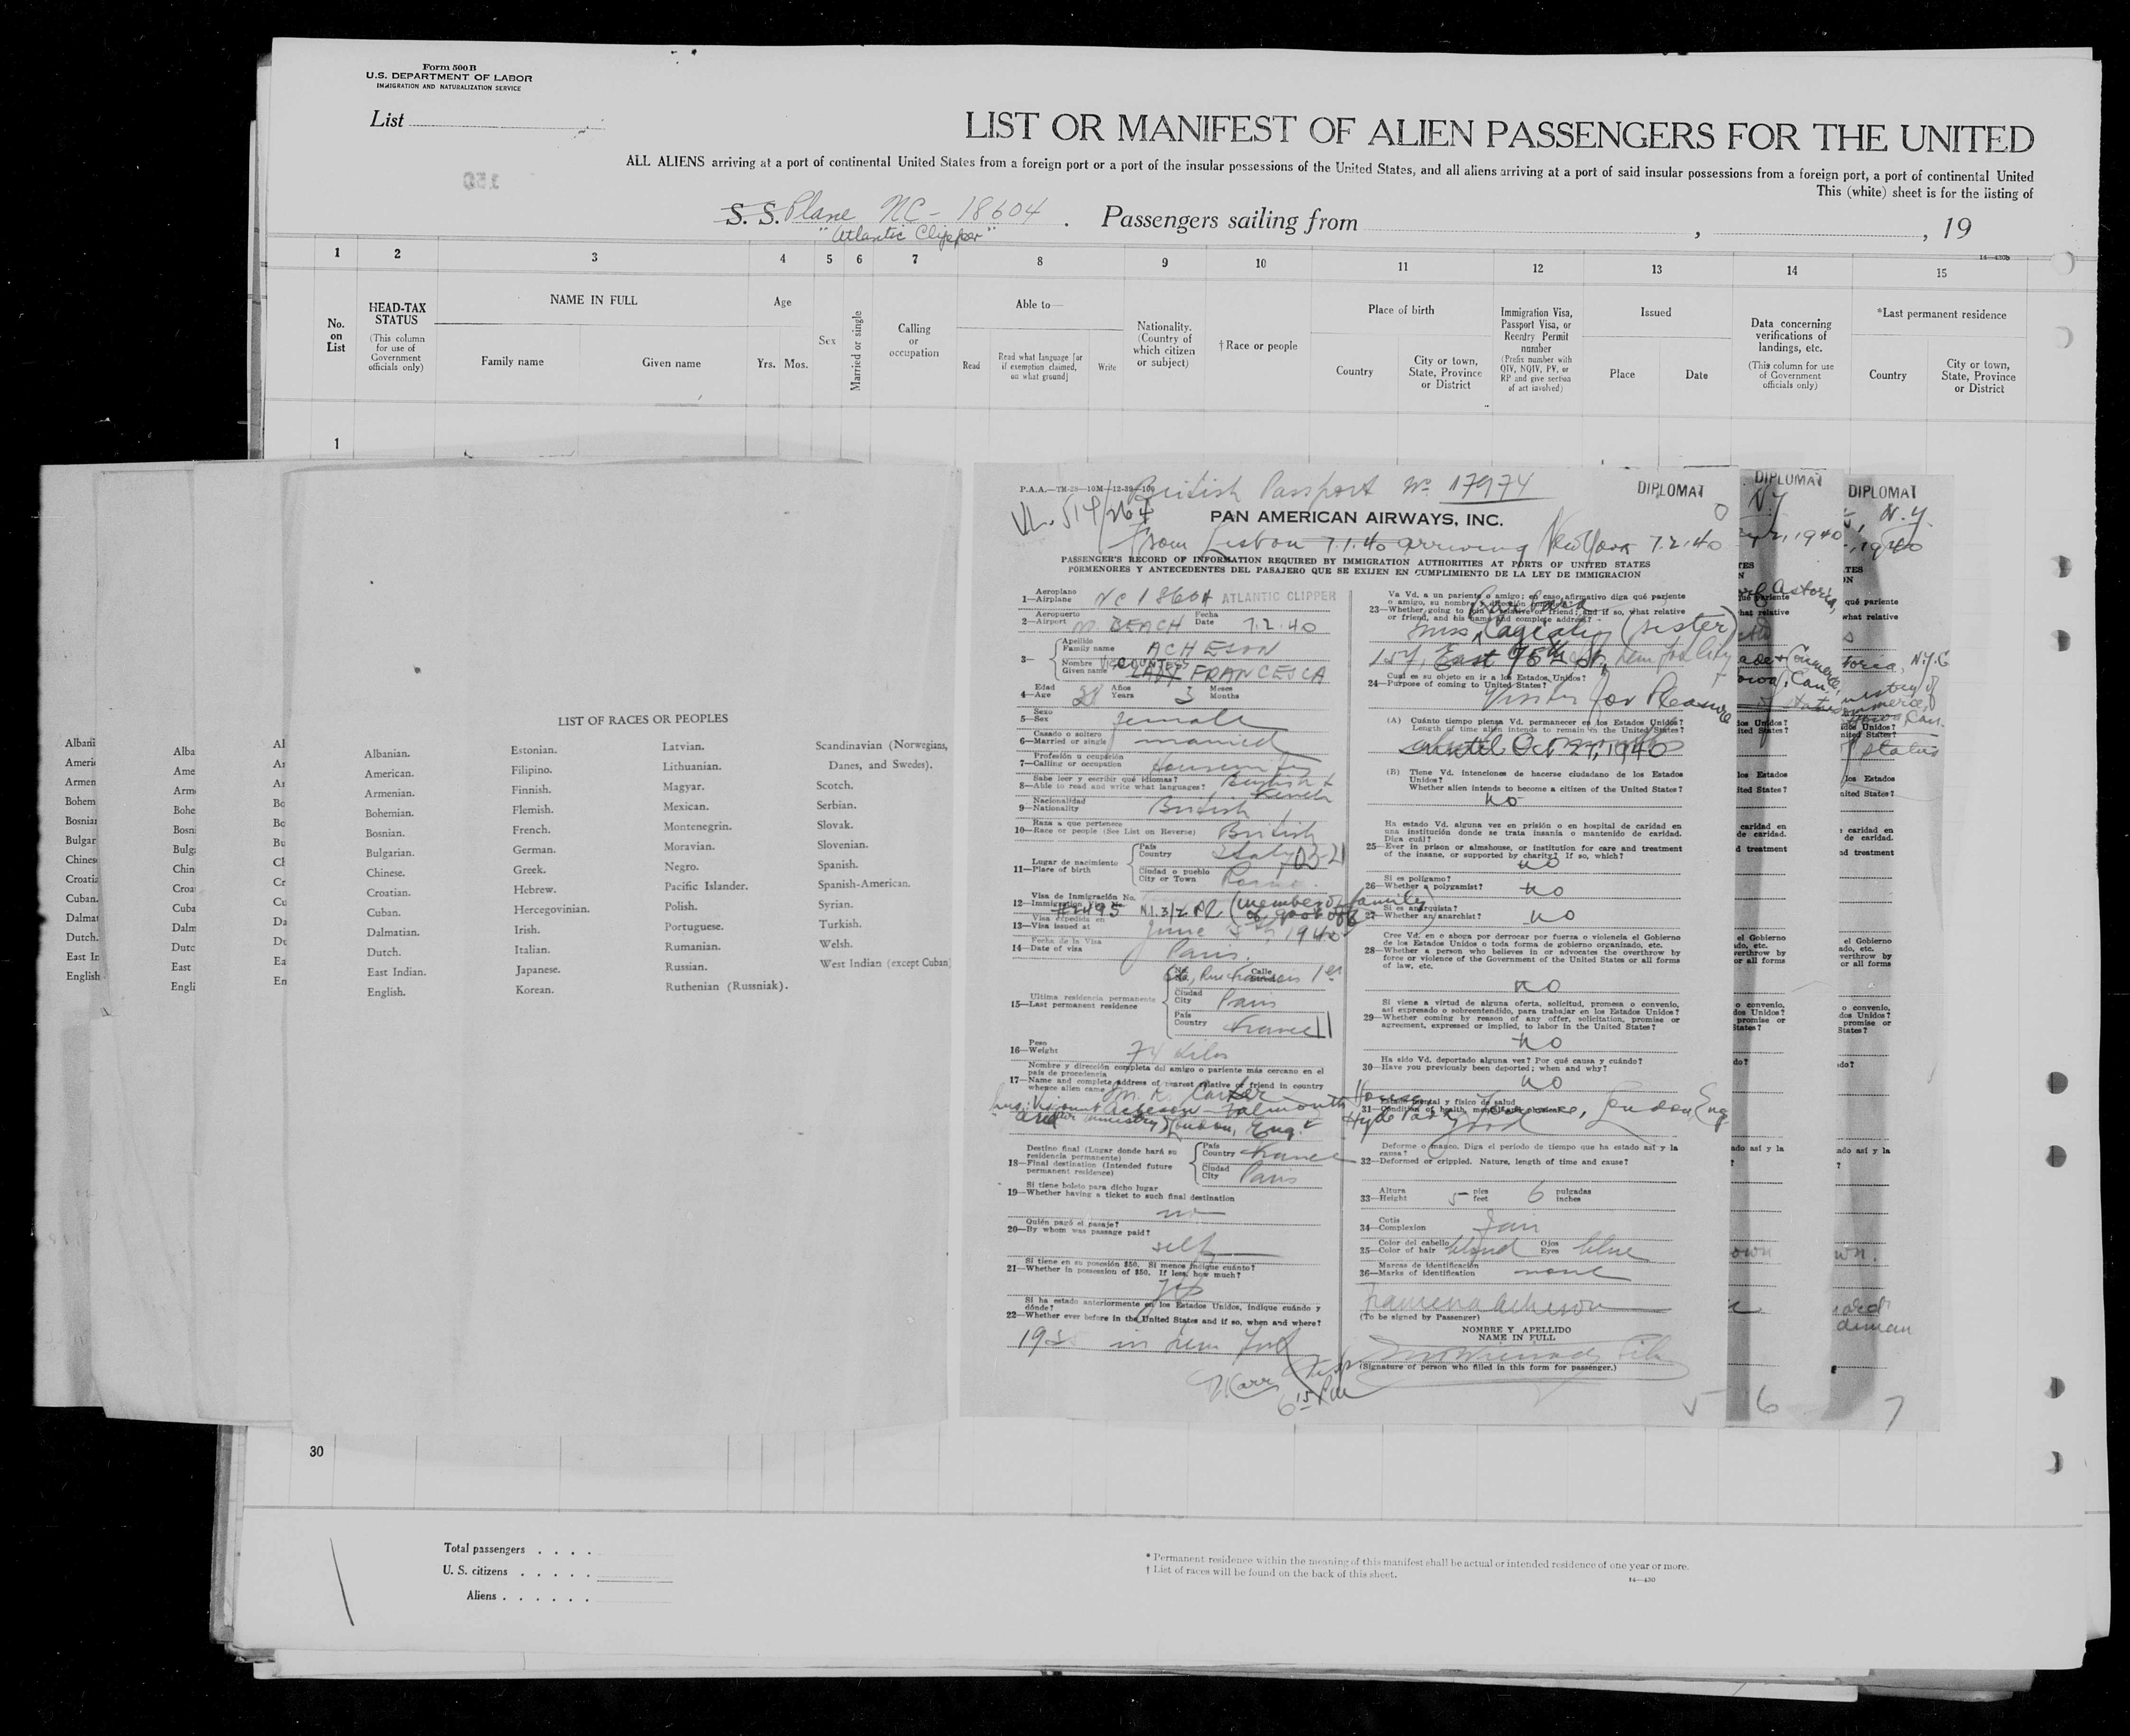 Form 500B
U.S. DEPARTMENT OF LABOR
IMMIGRATION AND NATURALIZATION SERVICE
List
LIST OR MANIFEST OF ALIEN PASSENGERS FOR THE UNITED
ALL ALIENS arriving at a port of continental United States from a foreign port or a port of the insular possessions of the United States, and all aliens arriving at a port of said insular possessions from a foreign port, a port of continental United
This (white) sheet is for the listing of
S. S. Plane NC-18604 . Passengers sailing from , , 19
"Atlantic Clipper"
1 2 3 4 5 6 7 8 9 10 11 12 13 14 15
No. on List
HEAD-TAX STATUS
(This column for use of Government officials only)
NAME IN FULL
Family name
Given name
Age
Yrs. Mos.
Sex
Married or single
Calling or occupation
Able to—
Read
Read what language [or if exemption claimed, on what ground]
Write
Nationality. (Country of which citizen or subject)
† Race or people
Place of birth
Country
City or town, State, Province or District
Immigration Visa, Passport Visa, or Reentry Permit number
(Prefix number with QIV, NQIV, PV, or RP and give section of act involved)
Issued
Place
Date
Data concerning verifications of landings, etc.
(This column for use of Government officials only)
*Last permanent residence
Country
City or town, State, Province or District
1
LIST OF RACES OR PEOPLES
Albanian.
American.
Armenian.
Bohemian.
Bosnian.
Bulgarian.
Chinese.
Croatian.
Cuban.
Dalmatian.
Dutch.
East Indian.
English.
Estonian.
Filipino.
Finnish.
Flemish.
French.
German.
Greek.
Hebrew.
Hercegovinian.
Irish.
Italian.
Japanese.
Korean.
Latvian.
Lithuanian.
Magyar.
Mexican.
Montenegrin.
Moravian.
Negro.
Pacific Islander.
Polish.
Portuguese.
Rumanian.
Russian.
Ruthenian (Russniak).
Scandinavian (Norwegians,
Danes, and Swedes).
Scotch.
Serbian.
Slovak.
Slovenian.
Spanish.
Spanish-American.
Syrian.
Turkish.
Welsh.
West Indian (except Cuban)
British Passport No 17974
DIPLOMAT
PAN AMERICAN AIRWAYS, INC.
From Lisbon 7.1.40 arriving New York 7.2.40
PASSENGER'S RECORD OF INFORMATION REQUIRED BY IMMIGRATION AUTHORITIES AT PORTS OF UNITED STATES
PORMENORES Y ANTECEDENTES DEL PASAJERO QUE SE EXIJEN EN CUMPLIMIENTO DE LA LEY DE IMMIGRACION
Aeroplano
1—Airplane NC 18604 ATLANTIC CLIPPER
Aeropuerto Fecha
2—Airport N. BEACH Date 7.2.40
Apellido
3— Family name ACHESON
Nombre
Given name VISCOUNTESS FRANCESCA
Edad Años Meses
4—Age Years 3 Months
Sexo
5—Sex female
Casado o soltero
6—Married or single married
Profesión u ocupción
7—Calling or occupation Housewife
Sabe leer y escribir qué idiomas?
8—Able to read and write what languages? English & French
Nacionalidad
9—Nationality British
Raza a que pertenece
10—Race or people (See List on Reverse) British
Lugar de nacimiento
11—Place of birth
País
Country Italy
Ciudad o pueblo
City or Town Rome
Visa de Inmigración No.
12—Immigration Visa No. #2495 (member of family of govt off)
Visa expedida en
13—Visa issued at June 5th, 1940
Fecha de la Visa
14—Date of visa Paris.
Ultima residencia permanente
15—Last permanent residence
Calle Rue Francois 1er
Ciudad
City Paris
País
Country France
Peso
16—Weight 74 kilos
Nombre y dirección completa del amigo o pariente más cercano en el país de procedencia
17—Name and complete address of nearest relative or friend in country whence alien came
Viscount Acheson - Falmouth House, Hyde Park Terrace, London, Eng.
Destino final (Lugar donde hará su residencia permanente)
18—Final destination (Intended future permanent residence)
País
Country France
Ciudad
City Paris
Si tiene boleto para dicho lugar
19—Whether having a ticket to such final destination
no
Quién pagó el pasaje?
20—By whom was passage paid?
self
Si tiene en su posesión $50. Si menos indique cuánto?
21—Whether in possession of $50. If less, how much?
yes
Si ha estado anteriormente en los Estados Unidos, indique cuándo y dónde?
22—Whether ever before in the United States and if so, when and where?
in New York
Va Vd. a un pariente o amigo; en caso afirmativo diga qué pariente o amigo, su nombre y dirección completa
23—Whether going to join a relative or friend; and if so, what relative or friend, and his name and complete address?
Miss Barbara (sister)
157, East 75th St, New York City
Cual es su objeto en ir a los Estados Unidos?
24—Purpose of coming to United States?
Visitor for Pleasure
(A) Cuánto tiempo piensa Vd. permanecer en los Estados Unidos?
Length of time alien intends to remain in the United States?
until Oct 27, 1940
(B) Tiene Vd. intenciones de hacerse ciudadano de los Estados Unidos?
Whether alien intends to become a citizen of the United States?
no
Ha estado Vd. alguna vez en prisión o en hospital de caridad en una institución donde se trata insania o mantenido de caridad. Diga cuál?
25—Ever in prison or almshouse, or institution for care and treatment of the insane, or supported by charity? If so, which?
no
Si es polígamo?
26—Whether a polygamist? no
Si es anarquista?
27—Whether an anarchist? no
Cree Vd. en o aboga por derrocar por fuerza o violencia el Gobierno de los Estados Unidos o toda forma de gobierno organizado, etc.
28—Whether a person who believes in or advocates the overthrow by force or violence of the Government of the United States or all forms of law, etc.
no
Si viene a virtud de alguna oferta, solicitud, promesa o convenio, así expresado o sobreentendido, para trabajar en los Estados Unidos?
29—Whether coming by reason of any offer, solicitation, promise or agreement, expressed or implied, to labor in the United States?
no
Ha sido Vd. deportado alguna vez? Por qué causa y cuándo?
30—Have you previously been deported; when and why?
no
Estado mental y físico de salud
31—Condition of health, mental and physical
good
Deforme o manco. Diga el periodo de tiempo que ha estado así y la causa?
32—Deformed or crippled. Nature, length of time and cause?
Altura pies pulgadas
33—Height 5 feet 6 inches
Cutis
34—Complexion fair
Color del cabello Ojos
35—Color of hair blond Eyes blue
Marcas de identificación
36—Marks of identification none
Francesca Acheson
(To be signed by Passenger)
NOMBRE Y APELLIDO
NAME IN FULL
(Signature of person who filled in this form for passenger.)
6 15 PM
5 6 7
DIPLOMAT
DIPLOMAT
30
Total passengers . . . .
U. S. citizens . . . . .
Aliens . . . . . .
* Permanent residence within the meaning of this manifest shall be actual or intended residence of one year or more.
† List of races will be found on the back of this sheet.